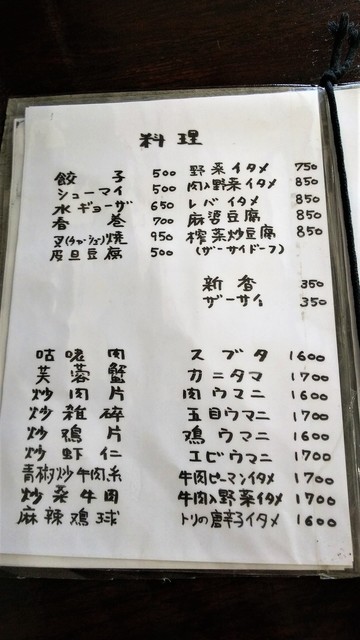 料理
餃子 500
シューマイ 500
水ギョーザ 650
春巻 700
叉(チャーシュー)焼 950
皮旦豆腐 500
野菜イタメ 750
肉入野菜イタメ 850
レバイタメ 850
麻婆豆腐 850
搾菜炒豆腐 850
(ザーサイドーフ)
新香 350
ザーサイ 350
咕咾肉 スブタ 1600
芙蓉蟹 カニタマ 1700
炒肉片 肉ウマニ 1600
炒雑碎 五目ウマニ 1700
炒鶏片 鶏ウマニ 1600
炒虾仁 エビウマニ 1700
青椒炒牛肉糸 牛肉ピーマンイタメ 1700
炒桑牛肉 牛肉入野菜イタメ 1700
麻辣鶏球 トリの唐辛子イタメ 1600